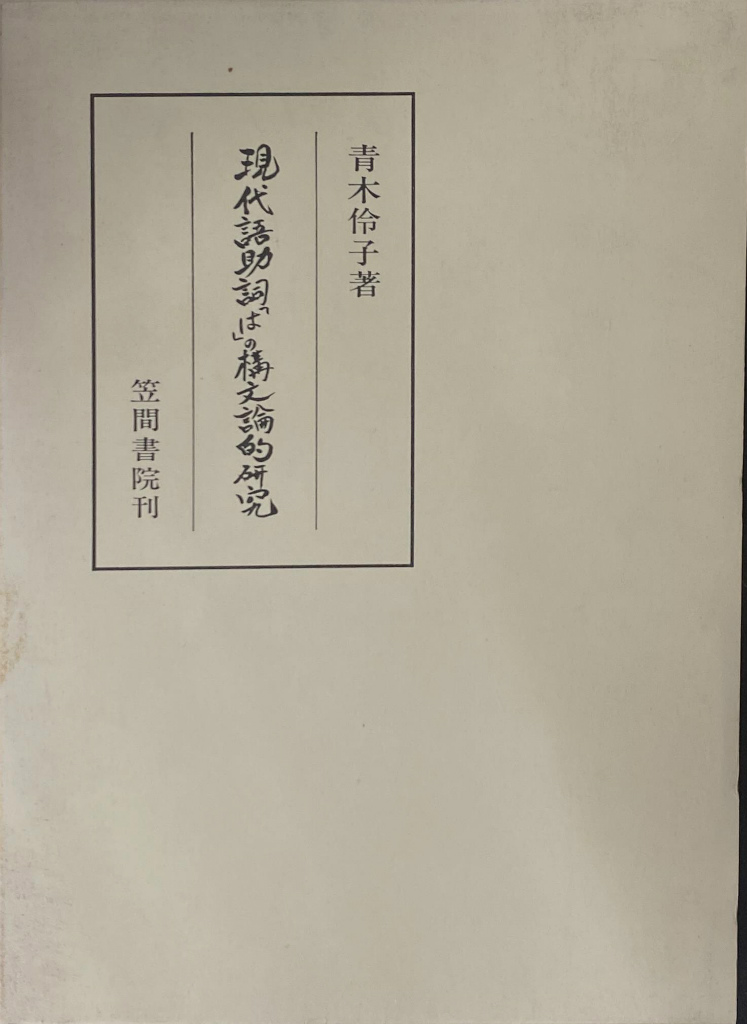 青木伶子著
現代語助詞「は」の構文論的研究
笠間書院刊